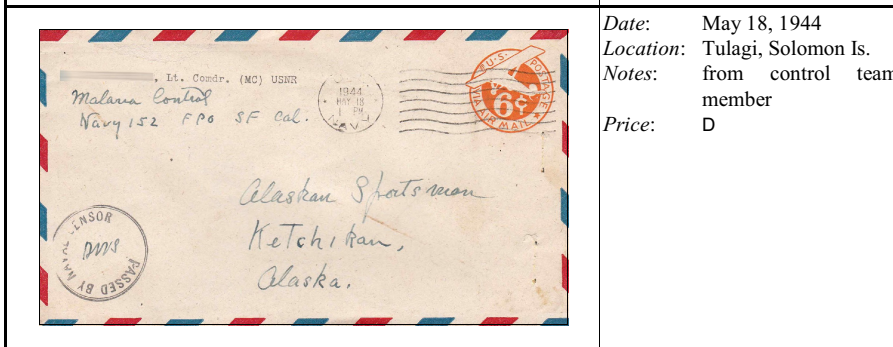 , Lt. Comdr. (MC) USNR
Malaria Control
Navy 152 FPO SF Cal.
1944
MAY 18
PM
NAVY
U.S. POSTAGE
6¢
VIA AIR MAIL
Alaskan Sportsman
Ketchikan,
Alaska.
PASSED BY NAVAL CENSOR
Date: May 18, 1944
Location: Tulagi, Solomon Is.
Notes: from control team
member
Price: D